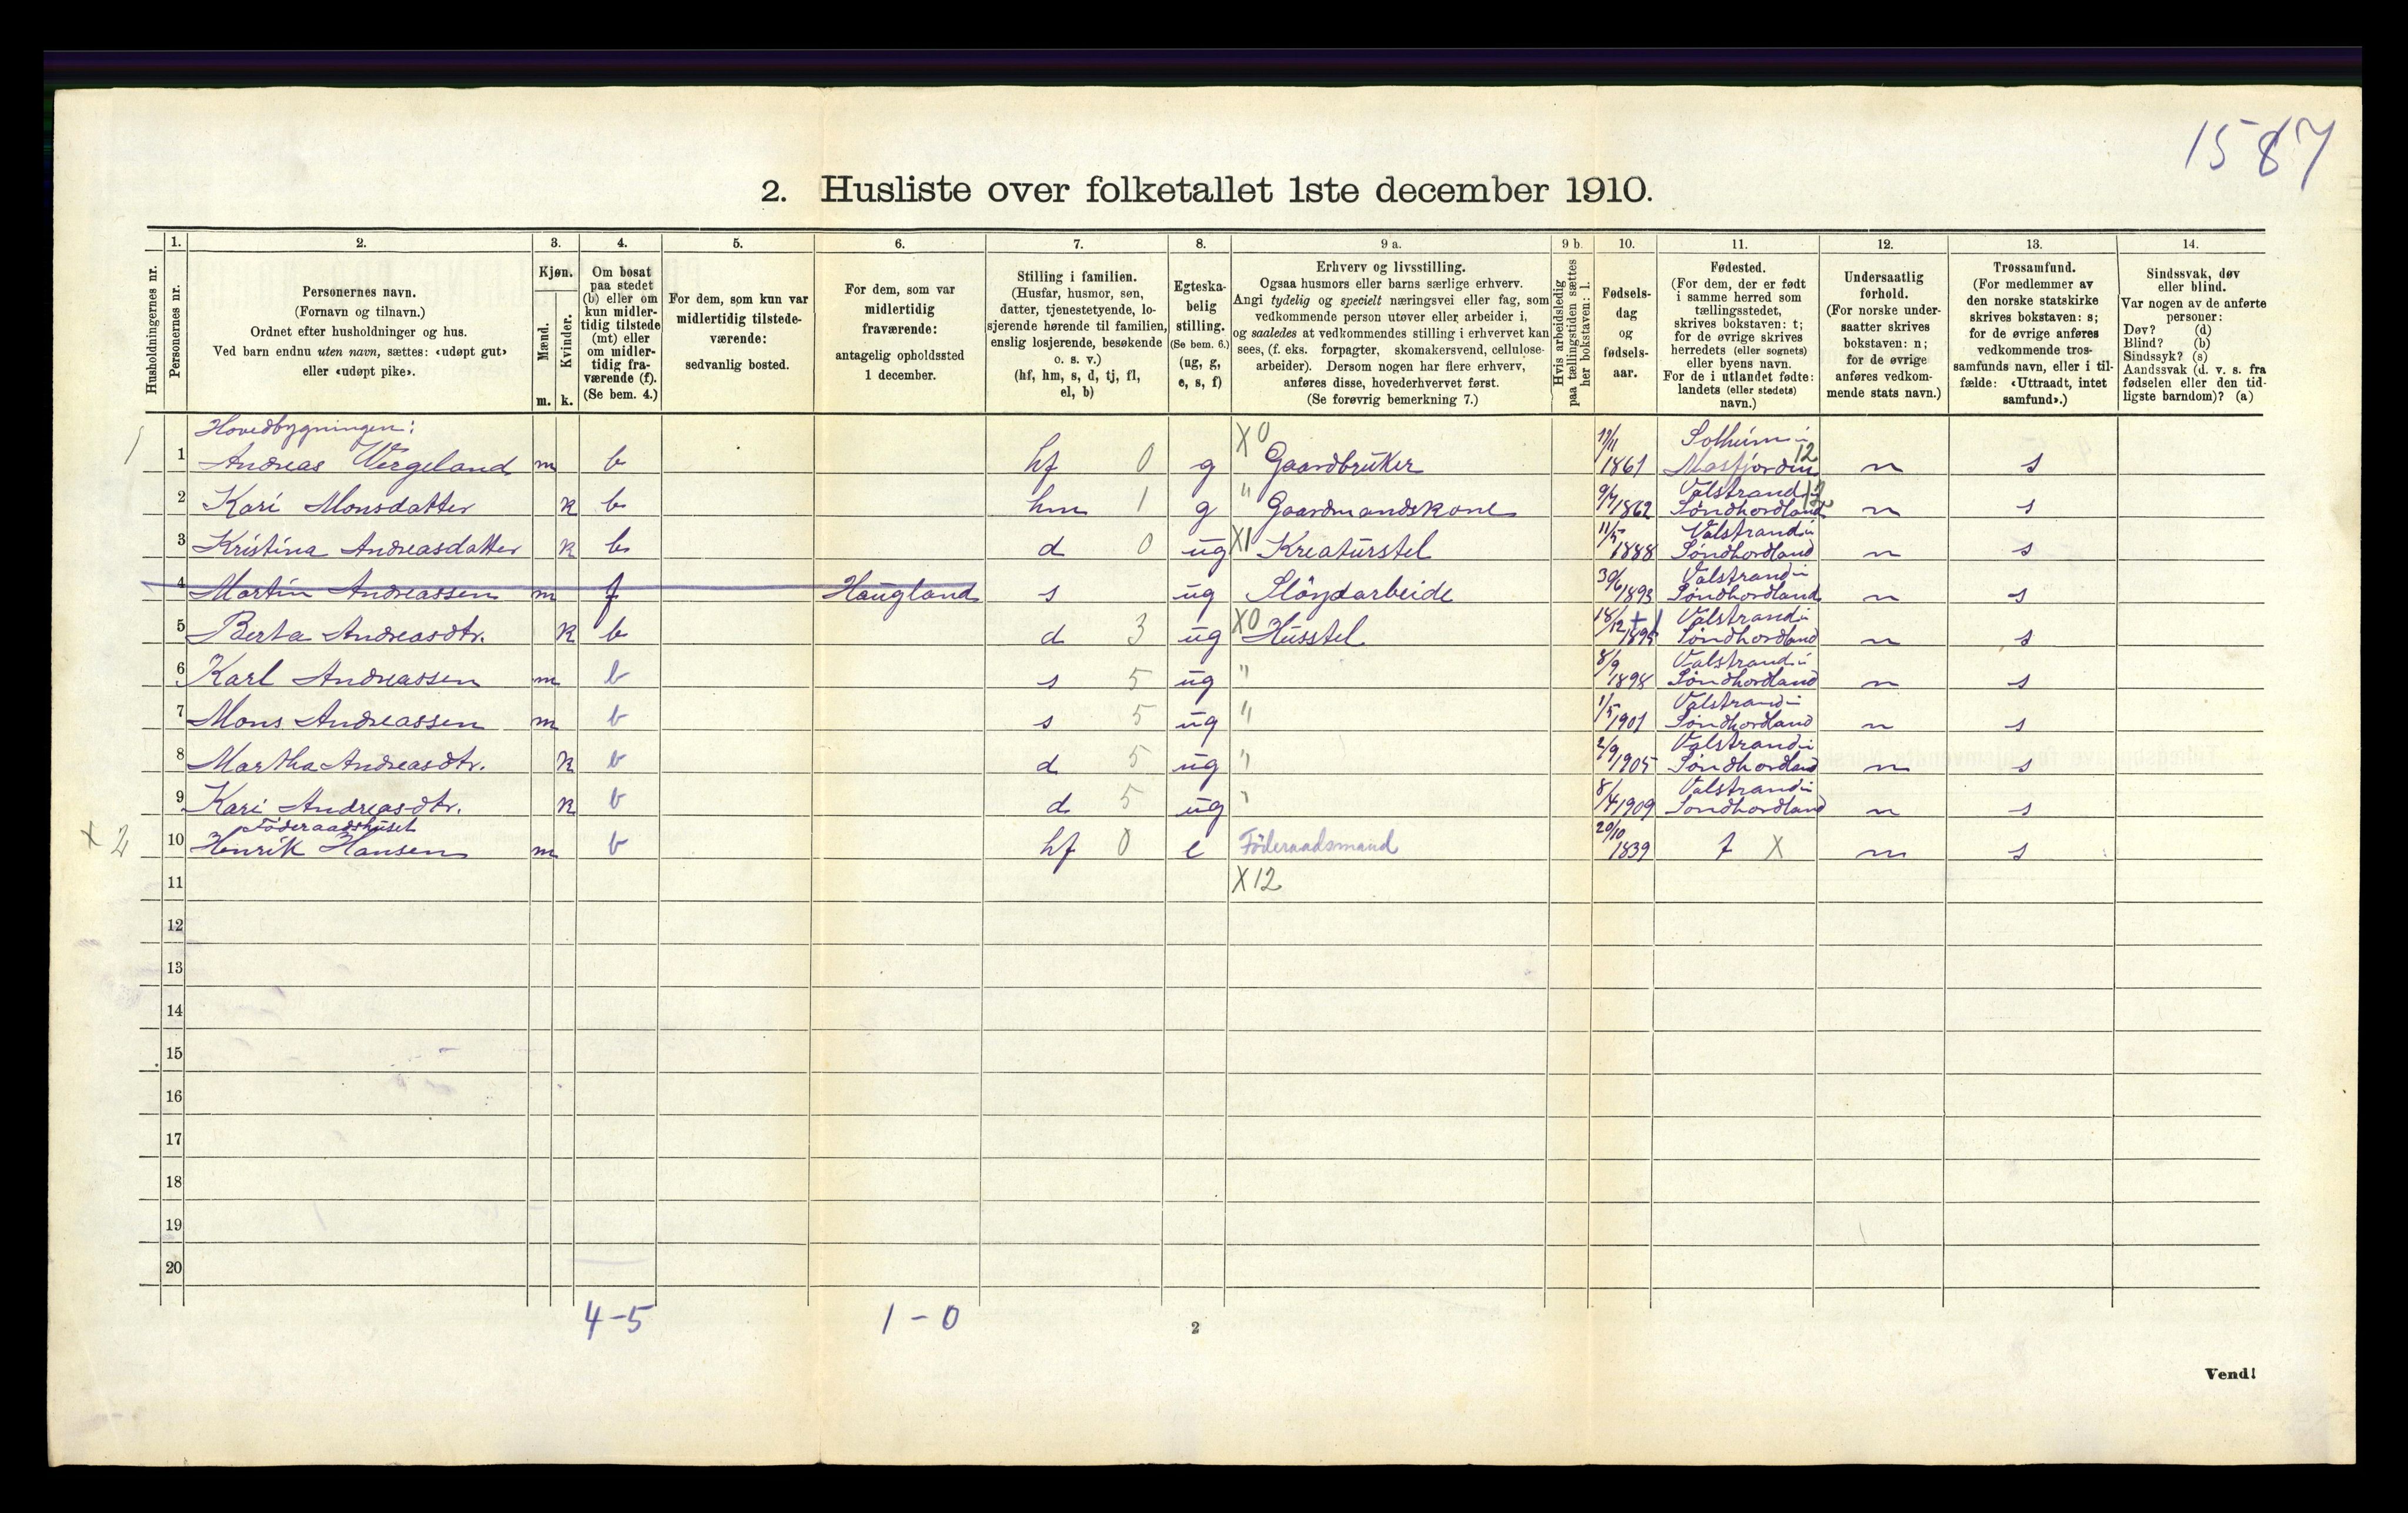 1587
2. Husliste over folketallet 1ste december 1910.
1. 2. 3. 4. 5. 6. 7. 8. 9 a. 9 b. 10. 11. 12. 13. 14.
Husholdningernes nr.
Personernes nr.
Personernes navn.
(Fornavn og tilnavn.)
Ordnet efter husholdninger og hus.
Ved barn endnu uten navn, sættes: «udøpt gut»
eller «udøpt pike».
Kjøn.
Mænd.
Kvinder.
m. k.
Om bosat
paa stedet
(b) eller om
kun midler-
tidig tilstede
(mt) eller
om midler-
tidig fra-
værende (f).
(Se bem. 4.)
For dem, som kun var
midlertidig tilstede-
værende:
sedvanlig bosted.
For dem, som var
midlertidig
fraværende:
antagelig opholdssted
1 december.
Stilling i familien.
(Husfar, husmor, søn,
datter, tjenestetyende, lo-
sjerende hørende til familien,
enslig losjerende, besøkende
o. s. v.)
(hf, hm, s, d, tj, fl,
el, b)
Egteska-
belig
stilling.
(Se bem. 6.)
(ug, g,
e, s, f)
Erhverv og livsstilling.
Ogsaa husmors eller barns særlige erhverv.
Angi tydelig og specielt næringsvei eller fag, som
vedkommende person utøver eller arbeider i,
og saaledes at vedkommendes stilling i erhvervet kan
sees, (f. eks. forpagter, skomakersvend, cellulose-
arbeider). Dersom nogen har flere erhverv,
anføres disse, hovederhvervet først.
(Se forøvrig bemerkning 7.)
Hvis arbeidsledig
paa tællingstiden sættes
her bokstaven: l.
Fødsels-
dag
og
fødsels-
aar.
Fødested.
(For dem, der er født
i samme herred som
tællingsstedet,
skrives bokstaven: t;
for de øvrige skrives
herredets (eller sognets)
eller byens navn.
For de i utlandet fødte:
landets (eller stedets)
navn.)
Undersaatlig
forhold.
(For norske under-
saatter skrives
bokstaven: n;
for de øvrige
anføres vedkom-
mende stats navn.)
Trossamfund.
(For medlemmer av
den norske statskirke
skrives bokstaven: s;
for de øvrige anføres
vedkommende tros-
samfunds navn, eller i til-
fælde: «Uttraadt, intet
samfund».)
Sindssvak, døv
eller blind.
Var nogen av de anførte
personer:
Døv? (d)
Blind? (b)
Sindssyk? (s)
Aandssvak (d. v. s. fra
fødselen eller den tid-
ligste barndom)? (a)
Hovedbygningen:
1 1 Andreas Vergeland m b hf 0 g X0 Gaardbruker 19/11 1861 Solheim i Masfjorden 12 n s
2 Kari Monsdatter k b hm 1 g " Gaardmandskone 9/7 1862 Valstrand i Søndhordland n s
3 Kristina Andreasdatter k b d 0 ug X1 Kreaturstel 11/5 1888 Valstrand i Søndhordland n s
4 Martin Andreassen m f Haugland s ug Sløydarbeide 30/6 1893 Valstrand i Søndhordland n s
5 Berta Andreasdtr. k b d 3 ug X0 Husstel 18/12 1895 Valstrand i Søndhordland n s
6 Karl Andreassen m b s 5 ug " 8/9 1898 Valstrand i Søndhordland n s
7 Mons Andreassen m b s 5 ug " 1/5 1901 Valstrand i Søndhordland n s
8 Martha Andreasdtr. k b d 5 ug " 2/9 1905 Valstrand i Søndhordland n s
9 Kari Andreasdtr. k b d 5 ug " 8/4 1909 Valstrand i Søndhordland n s
Föderaadshuset
X 2 10 Henrik Hansen m b hf 0 e Föderaadsmand 20/10 1839 t X n s
11 X12
12
13
14
15
16
17
18
19
20
4-5 1-0
2
Vend!